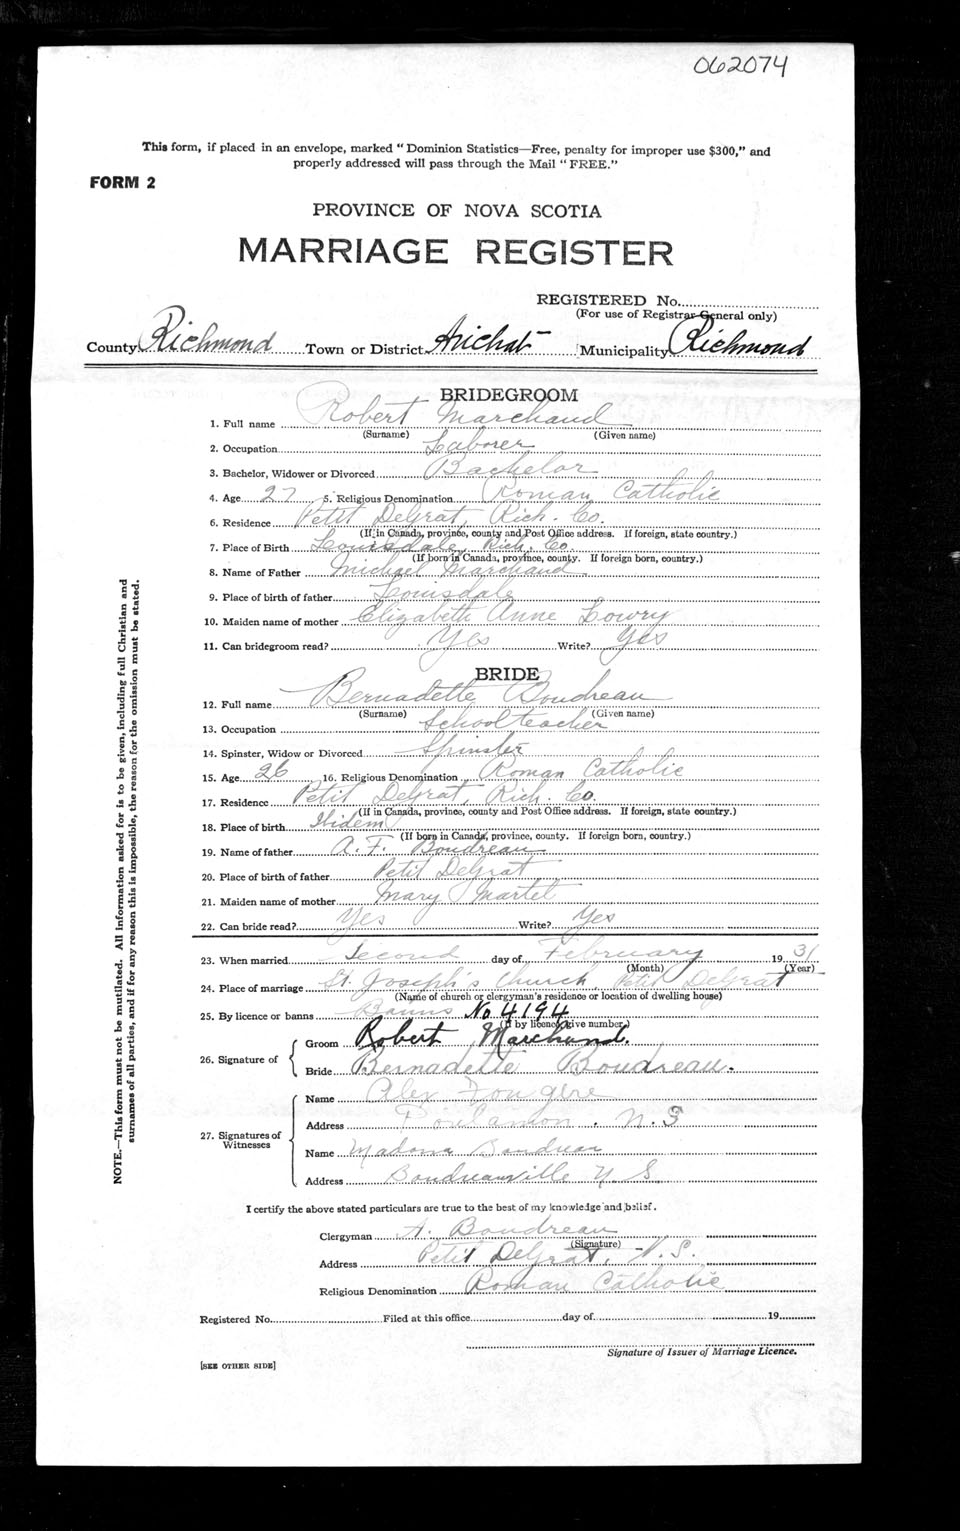 062074
This form, if placed in an envelope, marked "Dominion Statistics—Free, penalty for improper use $300," and
properly addressed will pass through the Mail "FREE."
FORM 2
PROVINCE OF NOVA SCOTIA
MARRIAGE REGISTER
REGISTERED No.
(For use of Registrar General only)
County Richmond Town or District Arichat Municipality Richmond
BRIDEGROOM
1. Full name Robert Marchand
(Surname) (Given name)
2. Occupation Laborer
3. Bachelor, Widower or Divorced Bachelor
4. Age 27 5. Religious Denomination Roman Catholic
6. Residence Petit DeGrat, Rich. Co.
(If in Canada, province, county and Post Office address. If foreign, state country.)
7. Place of Birth Louisdale, Rich. Co.
(If born in Canada, province, county. If foreign born, country.)
8. Name of Father Michael Marchand
9. Place of birth of father Louisdale
10. Maiden name of mother Elizabeth Anne Lowry
11. Can bridegroom read? Yes Write? Yes
BRIDE
12. Full name Bernadette Boudreau
(Surname) (Given name)
13. Occupation School teacher
14. Spinster, Widow or Divorced Spinster
15. Age 26 16. Religious Denomination Roman Catholic
17. Residence Petit DeGrat, Rich. Co.
(If in Canada, province, county and Post Office address. If foreign, state country.)
18. Place of birth Ibidem
(If born in Canada, province, county. If foreign born, country.)
19. Name of father A. F. Boudreau
20. Place of birth of father Petit DeGrat
21. Maiden name of mother Mary Martel
22. Can bride read? Yes Write? Yes
23. When married Second day of February 1931
(Month) (Year)
24. Place of marriage St. Joseph's Church, Petit DeGrat
(Name of church or clergyman's residence or location of dwelling house)
25. By licence or banns Banns No 4194
(If by licence, give number)
26. Signature of
Groom Robert Marchand.
Bride Bernadette Boudreau.
27. Signatures of Witnesses
Name Alex Fougere
Address Poulamon. N.S
Name Madona Boudreau
Address Boudreauville N S
I certify the above stated particulars are true to the best of my knowledge and belief.
Clergyman A. Boudreau
(Signature)
Address Petit DeGrat, N.S.
Religious Denomination Roman Catholic
Registered No. Filed at this office day of 19
Signature of Issuer of Marriage Licence.
[SEE OTHER SIDE]
NOTE.—This form must not be mutilated. All information asked for is to be given, including full Christian and
surnames of all parties, and if for any reason this is impossible, the reason for the omission must be stated.